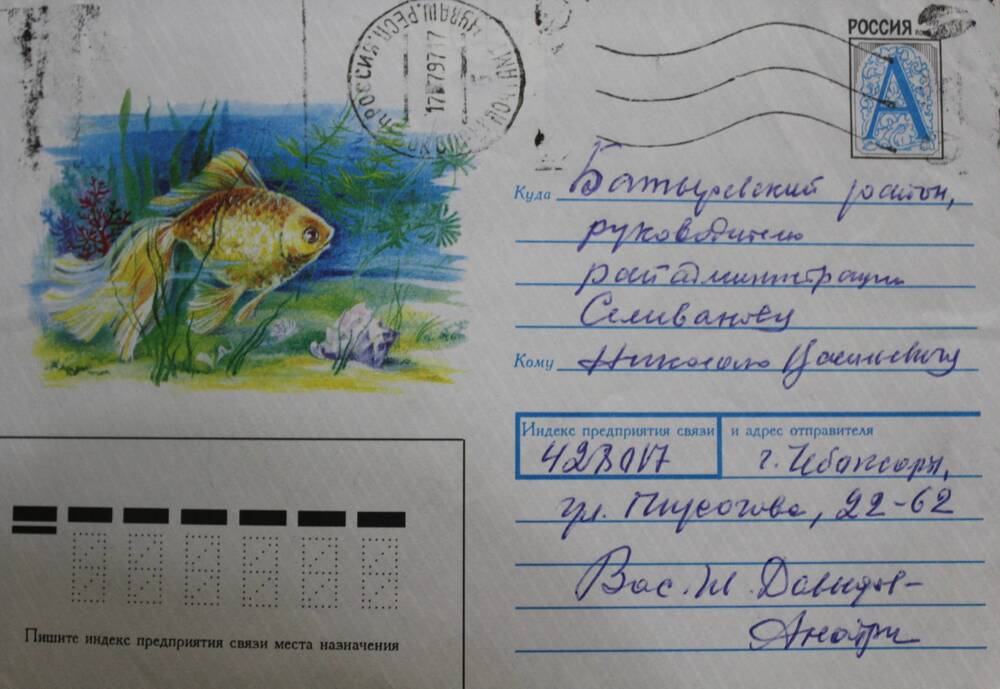 РОССИЯ
РОССИЯ ЧУВАШ.РЕСП.
17 797 17
Куда Батыревский район,
руководителю
райадминистрации
Селиванову
Кому Николаю Васильевичу
Индекс предприятия связи и адрес отправителя
428017 г. Чебоксары,
ул. Пирогова, 22-62
Вас. И. Давыдов-
Анатри
Пишите индекс предприятия связи места назначения